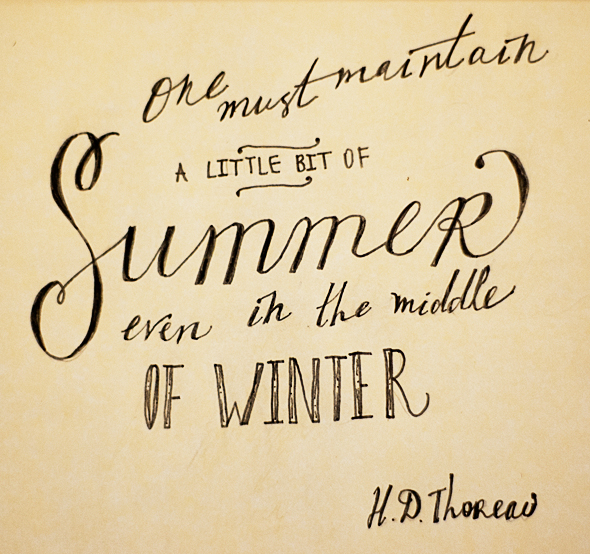 One must maintain
A LITTLE BIT OF
Summer
even in the middle
OF WINTER
H.D. Thoreau